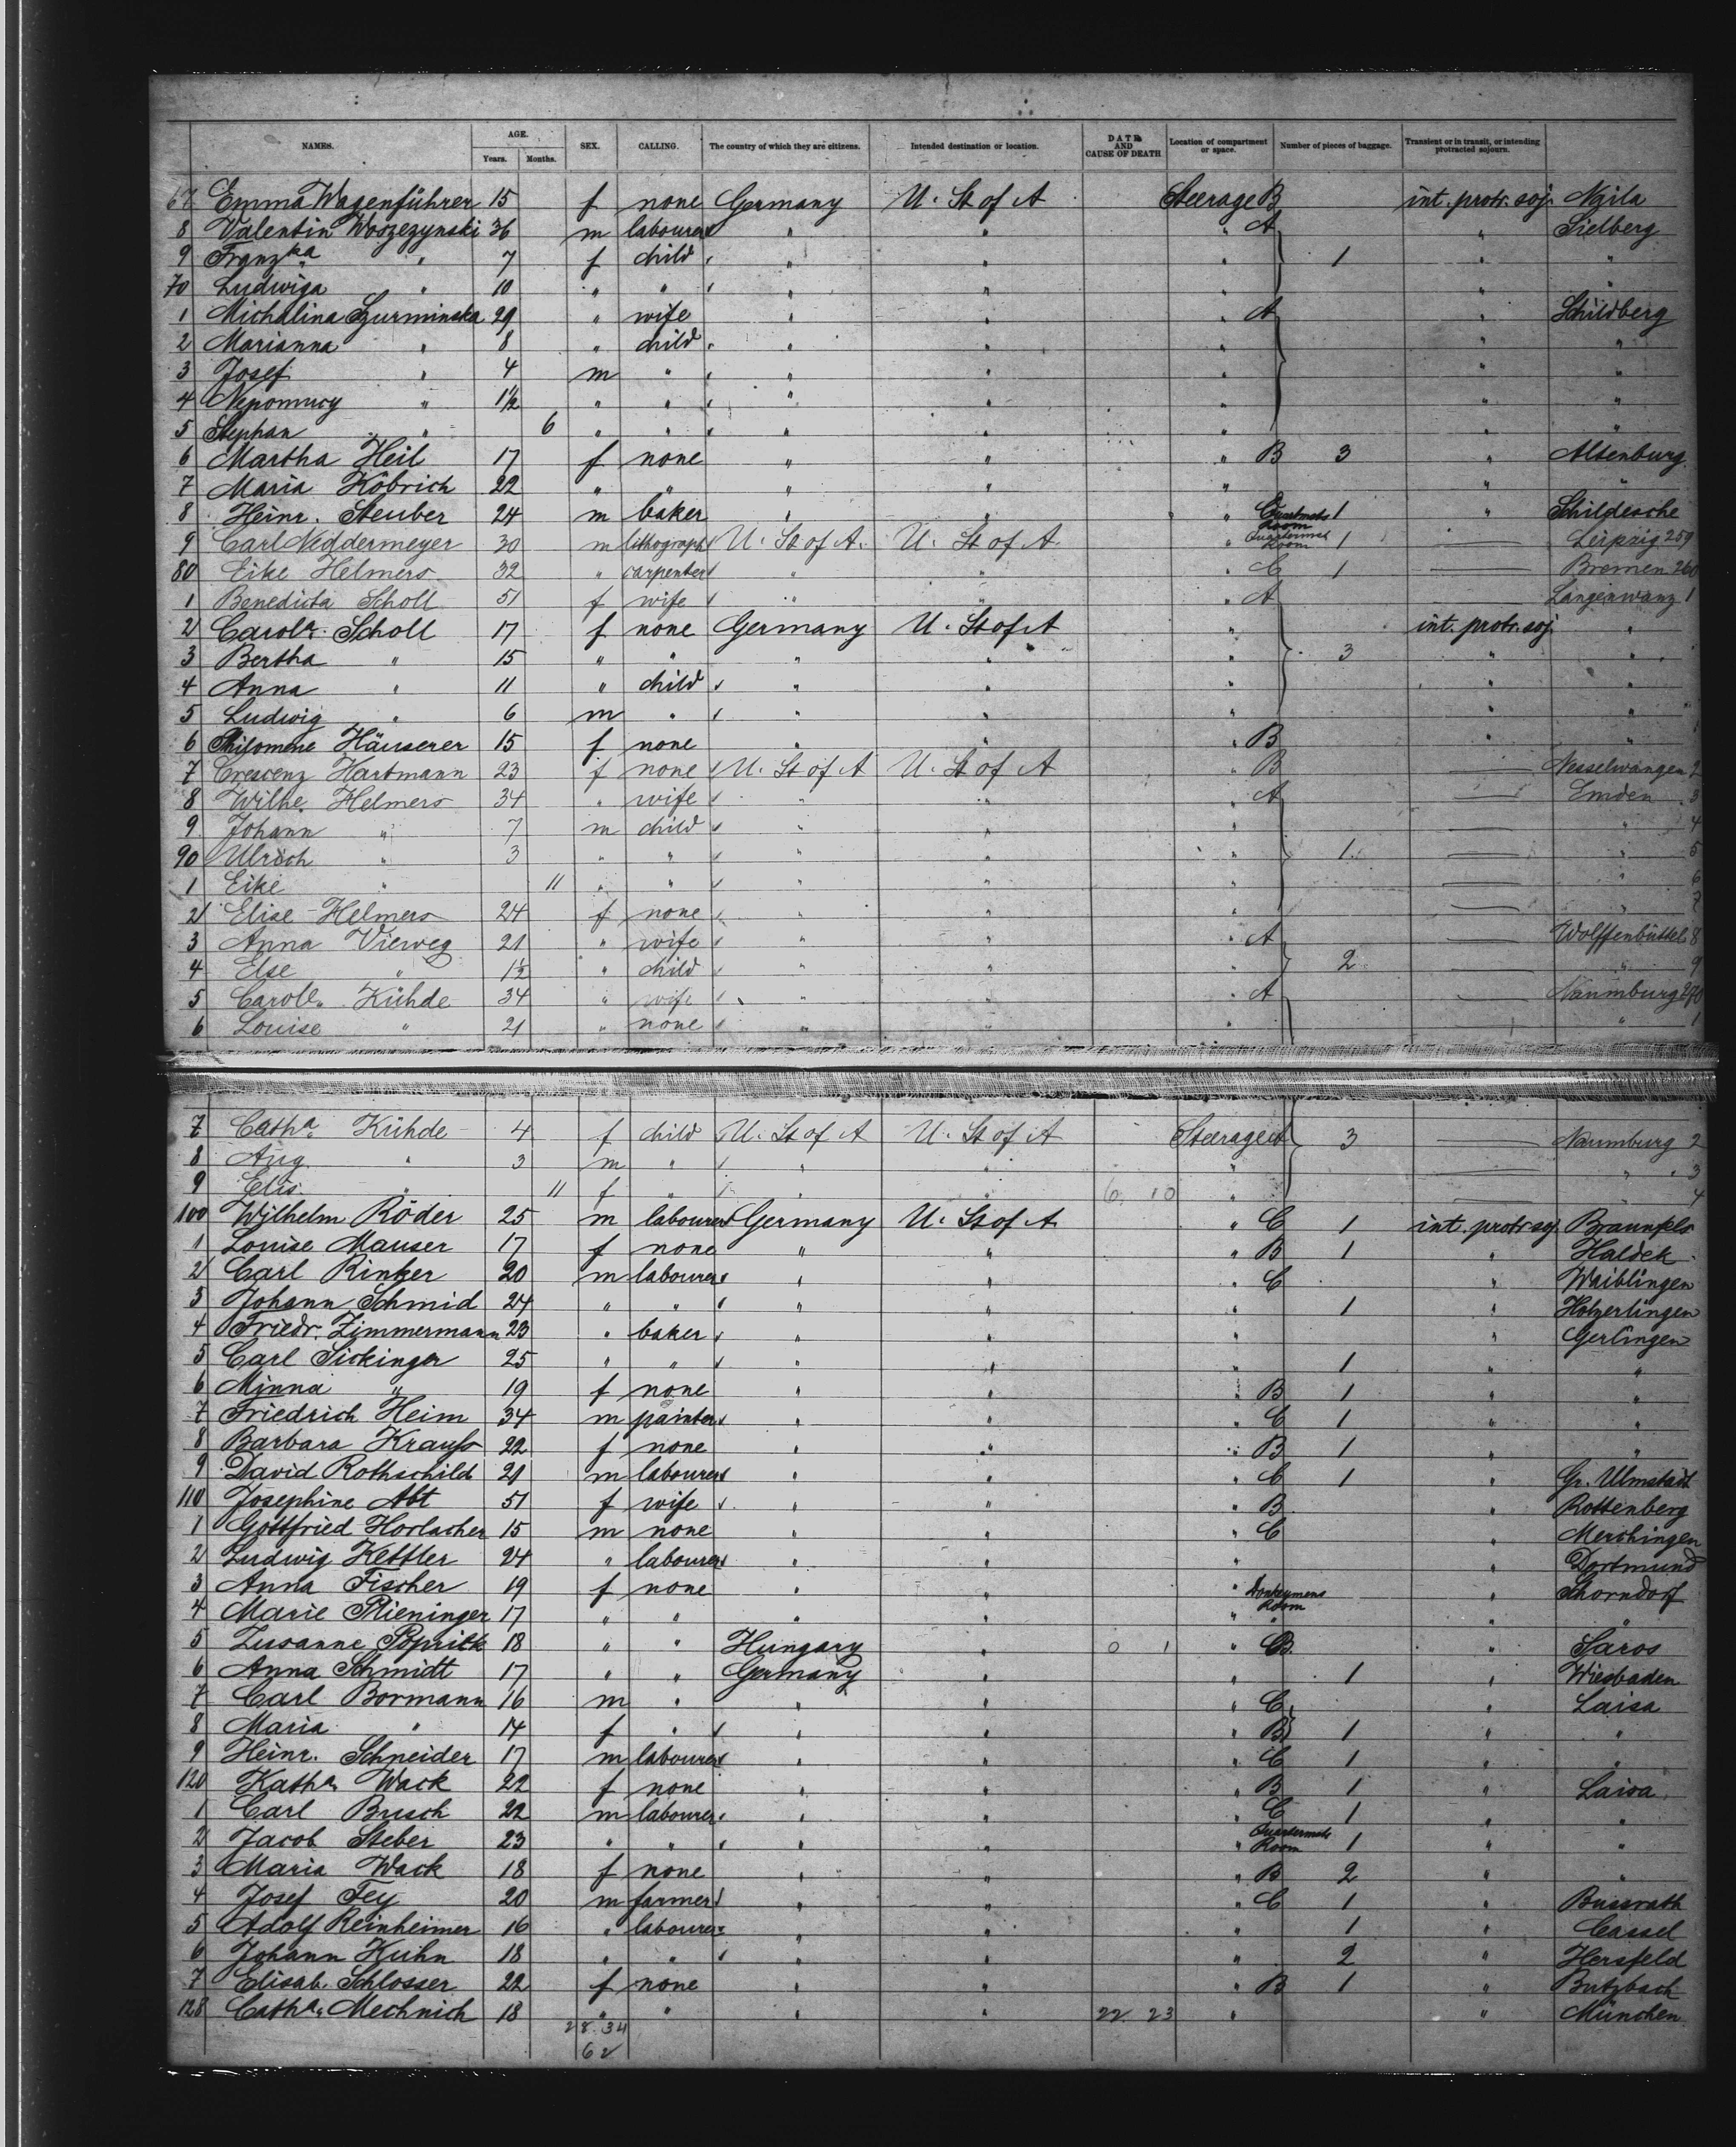 NAMES. AGE. Years. Months. SEX. CALLING. The country of which they are citizens. Intended destination or location. DATE AND CAUSE OF DEATH Location of compartment or space. Number of pieces of baggage. Transient or in transit, or intending protracted sojourn.
67 Emma Wagenführer 15 f none Germany U. St of A Steerage B int. protr. soj. Naila
8 Valentin 36 m labourer " " " A " Sielberg
9 Franzka " 7 f child " " " 1 " "
70 Ludwiga " 10 " " " " " " "
1 Michalina Szurminska 29 " wife " " " A " Schildberg
2 Marianna " 8 " child " " " " "
3 Josef " 4 m " " " " " "
4 Nepomucy " 1½ " " " " " " "
5 Stephan " 6 " " " " " " "
6 Martha Heil 17 f none " " " B 3 " Altenburg
7 Maria Köbrich 22 " " " " " " "
8 Heinr. Steuber 24 m baker " " " Quartrmstrs Room 1 " Schildesche
9 Carl Neddermeyer 30 m lithograph U. St of A. U. St of A " Quartermstrs Room 1 — Leipzig 259
80 Eike Helmers 32 " carpenter " " " C 1 — Bremen 260
1 Benedicta Scholl 51 f wife " " " A Langenwanz 1
2 Carola Scholl 17 f none Germany U. St of A " int. protr. soj. "
3 Bertha " 15 " " " " " 3 " "
4 Anna " 11 " child " " " " "
5 Ludwig " 6 m " " " " " "
6 Philomene Häuserer 15 f none " " " B " "
7 Crescenz Hartmann 23 f none U. St of A U. St of A " B — Nesselwangen 2
8 Wilhe. Helmers 34 " wife " " " A — Emden 3
9 Johann " 7 m child " " " — " 4
90 Ulrich " 3 " " " " " 1 — " 5
1 Eike " 11 " " " " " — " 6
2 Elise Helmers 24 f none " " " — " 7
3 Anna Vieweg 21 " wife " " " A — Wolffenbüttel 8
4 Else " 1½ " child " " " 2 — " 9
5 Caroll. Kühde 34 " wife " " " A — Naumburg 270
6 Louise " 21 " none " " " " 1
7 Catha. Kühde 4 f child U. St of A U. St of A Steerage A 3 — Naumburg 2
8 Aug. " 3 m " " " " — " 3
9 Elis. " 11 f " " " 6 10 " — 4
100 Wilhelm Röder 25 m labourer Germany U. St of A " C 1 int. protr. soj. Braunfels
1 Louise Mauser 17 f none " " " B 1 " Haldek
2 Carl Rinker 20 m labourer " " " C " Waiblingen
3 Johann Schmid 24 " " " " " 1 " Holzerlingen
4 Friedr. Zimmermann 23 " baker " " " " Gerlingen
5 Carl Sickinger 25 " " " " " 1 " "
6 Minna " 19 f none " " " B 1 " "
7 Friedrich Heim 34 m painter " " " C 1 " "
8 Barbara Krauss 22 f none " " " B 1 " "
9 David Rothschild 21 m labourer " " " C 1 " Gr. Umstadt
110 Josephine Abt 51 f wife " " " B " Rottenberg
1 Gottfried Horlacher 15 m none " " " C " Merchingen
2 Ludwig Kettler 24 " labourer " " " " Dortmund
3 Anna Fischer 19 f none " " " Donkeymens Room " Schorndorf
4 Marie Plieninger 17 " " " " " " " "
5 Zusanne 18 " " Hungary " 0 1 " B. " Saros
6 Anna Schmidt 17 " " Germany " 1 " Wiesbaden
7 Carl Bormann 16 m " " " " C " Laisa
8 Maria " 14 f " " " " B 1 " "
9 Heinr. Schneider 17 m labourer " " " C 1 " "
120 Katha. Wack 22 f none " " " B 1 " Laisa
1 Carl Busch 22 m labourer " " " C 1 " "
2 Jacob Steber 23 " " " " " Quartermstrs Room 1 " "
3 Maria Wack 18 f none " " " B 2 " "
4 Josef Fey 20 m farmer " " " C 1 " Bussrath
5 Adolf Reinheimer 16 " labourer " " " 1 " Cassel
6 Johann Kuhn 18 " " " " " 2 " Hersfeld
7 Elisab. Schlosser 22 f none " " " B 1 " Butzbach
128 Catha. Mechnich 18 " " " " 22 23 " " München
28 34
62